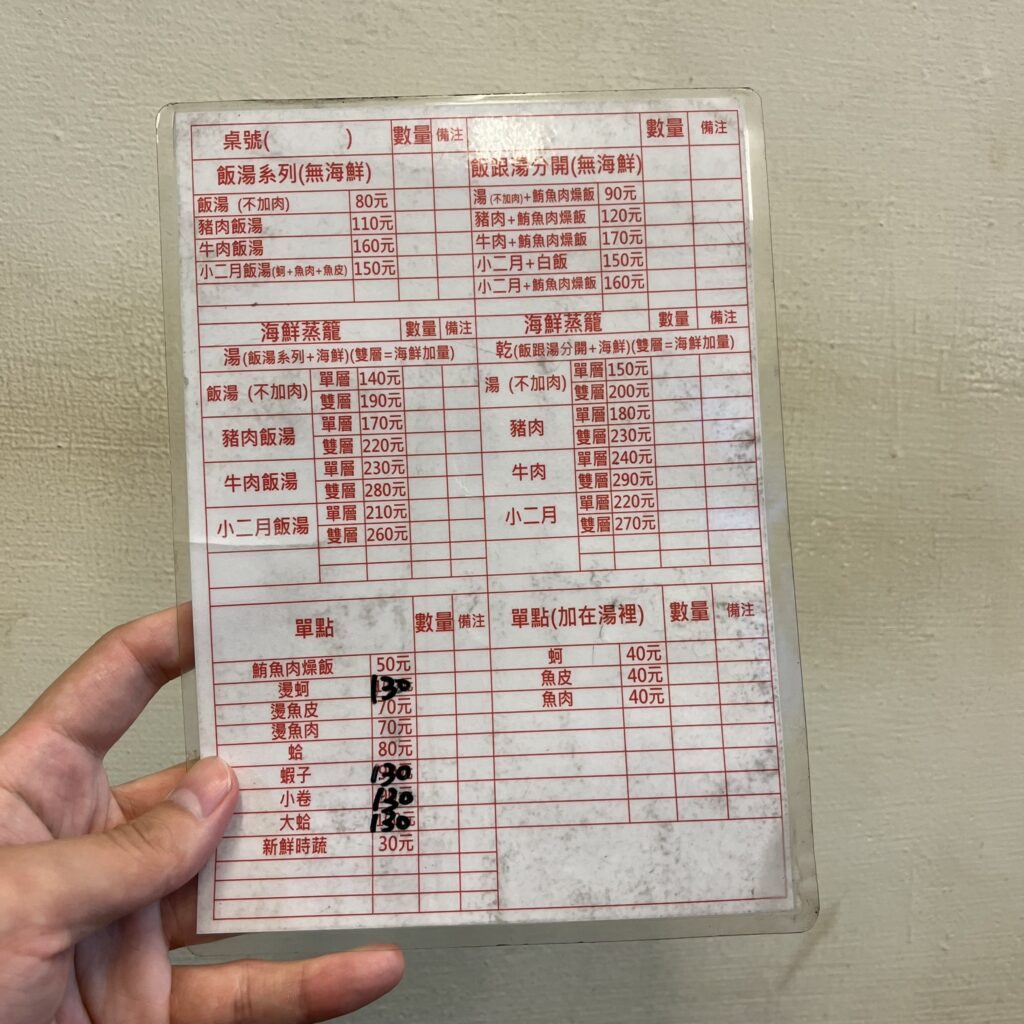 桌號( ) 數量 備注
飯湯系列(無海鮮)
飯湯 (不加肉) 80元
豬肉飯湯 110元
牛肉飯湯 160元
小二月飯湯(蚵+魚肉+魚皮) 150元
數量 備注
飯跟湯分開(無海鮮)
湯(不加肉)+鮪魚肉燥飯 90元
豬肉+鮪魚肉燥飯 120元
牛肉+鮪魚肉燥飯 170元
小二月+白飯 150元
小二月+鮪魚肉燥飯 160元
海鮮蒸籠 數量 備注
湯(飯湯系列+海鮮)(雙層=海鮮加量)
飯湯 (不加肉) 單層 140元
雙層 190元
豬肉飯湯 單層 170元
雙層 220元
牛肉飯湯 單層 230元
雙層 280元
小二月飯湯 單層 210元
雙層 260元
海鮮蒸籠 數量 備注
乾(飯跟湯分開+海鮮)(雙層=海鮮加量)
湯 (不加肉) 單層 150元
雙層 200元
豬肉 單層 180元
雙層 230元
牛肉 單層 240元
雙層 290元
小二月 單層 220元
雙層 270元
單點 數量 備注
鮪魚肉燥飯 50元
燙蚵 130
燙魚皮 70元
燙魚肉 70元
蛤 80元
蝦子 130
小卷 130
大蛤 130
新鮮時蔬 30元
單點(加在湯裡) 數量 備注
蚵 40元
魚皮 40元
魚肉 40元